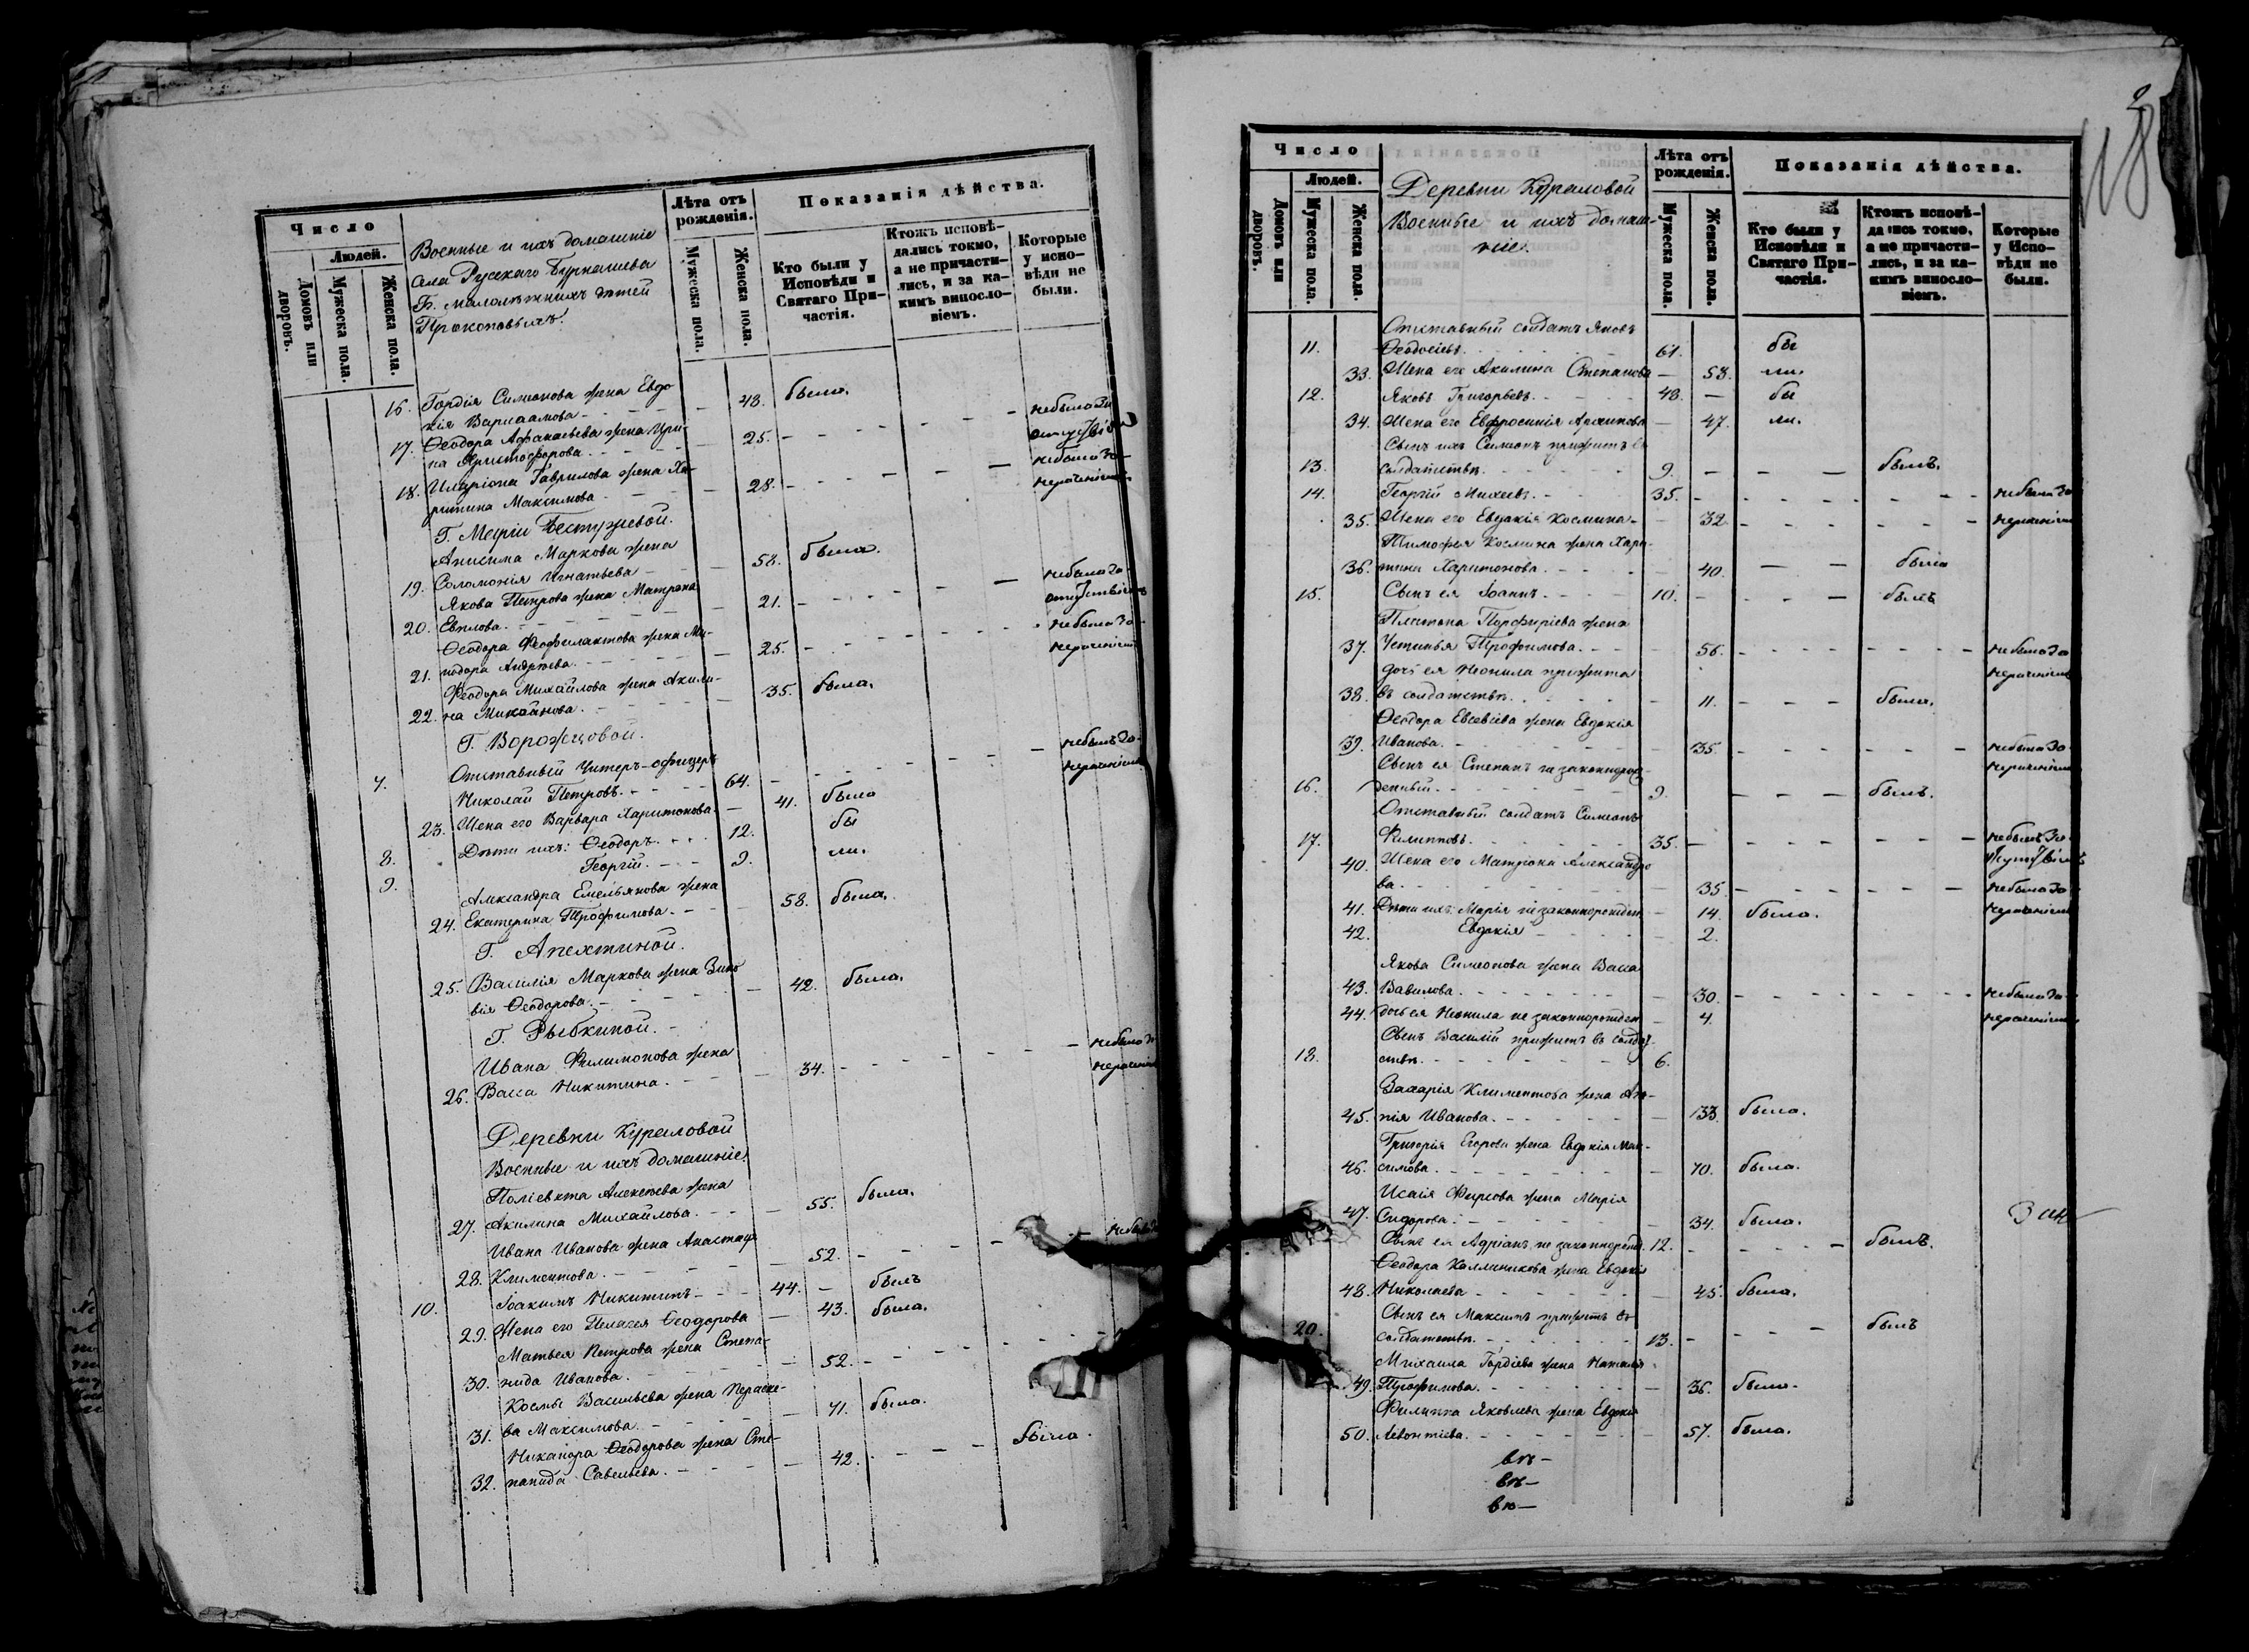 Число
Людей.
Домовъ или дворовъ.
Мужеска пола.
Женска пола.
Военные и ихъ домашніе
села Русскаго Бурнашева
Г. малолѣтнихъ дѣтей
Прокоповыхъ.
Лѣта отъ рожденія.
Мужеска пола.
Женска пола.
Показанія дѣйства.
Кто были у Исповѣди и Святаго Причастія.
Ктожъ исповѣдались токмо, а не причастились, и за какимъ винословіемъ.
Которые у исповѣди не были.
Гордія Симеонова жена Евдо
16. кія Варлаамова - 48. была.
Ѳеодора Афанасьева жена Ири- небыла за
17. на Христофорова - 25. отсутствіемъ
Иларіона Гаврилова жена Ха- небыла за
18. ритина Максимова - 28. нераченіемъ
Г. Маріи Бестужевой.
Анисима Маркова жена
19. Соломонія Игнатьева - 58. была.
Якова Петрова жена Матрона небыла за
20. Евлова - 21. отсутствіемъ
Ѳеодора Феофилактова жена Ми- небыла за
21. нодора Андреева - 25. нераченіемъ
Феодора Михайлова жена Акили-
22. на Михайлова - 35. была.
Г. Ворожцовой.
7. Отставный Унтеръ-офицеръ небылъ за
Николай Петровъ - 64. нераченіемъ
23. Жена его Варвара Харитонова - 41. была
8. Дѣти ихъ: Ѳеодоръ. 12. бы
9. Георгій. 9. ли.
Александра Емельянова жена
24. Екатерина Трофимова - 58. была.
Г. Апехтиной.
25. Василія Маркова жена Зино
вія Ѳеодорова - 42. была.
Г. Рыбкиной.
Ивана Филимонова жена небыла за
26. Васса Никитина - 34. нераченіемъ
Деревни Кураловой
Военные и ихъ домашніе.
Поліевкта Алексѣева жена
27. Акилина Михайлова - 55. была.
Ивана Иванова жена Анастасія
28. Климентова - 52. небыла
10. Іоакимъ Никитинъ - 44. былъ
29. Жена его Пелагея Ѳеодорова - 43. была.
Матвея Петрова жена Степа-
30. нида Иванова. 52.
Космы Васильева жена Параске-
31. ва Максимова - 71. была.
Никанора Ѳеодорова жена Сте-
32. панида Савельева. - 42. была.
2
118
Число
Людей.
Домовъ или дворовъ.
Мужеска пола.
Женска пола.
Деревни Кураловой
Военные и ихъ домаш-
ніе.
Лѣта отъ рожденія.
Мужеска пола.
Женска пола.
Показанія дѣйства.
Кто были у Исповѣди и Святаго Причастія.
Ктожъ исповѣдались токмо, а не причастились, и за какимъ винословіемъ.
Которые у Исповѣди не были.
Отставный солдатъ Яковъ
11. Ѳеодосіевъ. 61. бы
33. Жена его Акилина Степанова - 58. ли.
12. Яковъ Григорьевъ. 48. - бы
34. Жена его Евфросинія Архипова - 47. ли.
Сынъ ихъ Симеонъ прижитъ въ
13. солдатствѣ. 9. былъ.
14. Георгій Михеевъ. 35. небыли за
35. Жена его Евдокія Космина - 32. нераченіемъ
Тимофея Космина жена Хари-
36. тина Харитонова. 40. была
15. Сынъ ея Іоаннъ. 10. былъ
Платона Порфиріева жена
37. Устинья Трофимова. 56. небыла за
дочь ея Неонила прижита нераченіемъ
38. въ солдатствѣ. 11. была.
Ѳеодора Евсевіева жена Евдокія
39. Иванова. 35. небыла за
Сынъ ея Степанъ незаконнорож- нераченіемъ
16. денный. 9. былъ.
Отставный солдатъ Симеонъ
17. Филипповъ. 35. небылъ за
40. Жена его Матрона Александро отсутствіемъ
ва. 35. небыла за
41. Дѣти ихъ: Марія незаконнорожден. - 14. была. нераченіемъ
42. Евдокія - 2.
Якова Симеонова жена Васса
43. Вавилова. 30. небыла за
44. дочь ея Неонила не законнорожден - 4. нераченіемъ
Сынъ Василій прижитъ въ солдат-
18. ствѣ. 6.
Захарія Климентова жена Ан-
45. нія Иванова. 33. была.
Григорія Егорова жена Евдокія Мак-
46. симова. 70. была.
Исаія Фирсова жена Марія
47. Сидорова. 34. была.
Сынъ ея Адріанъ не законнорожд. 12. былъ.
Ѳеодора Каллиникова жена Евдокія
48. Николаева 45. была.
Сынъ ея Максимъ прижитъ въ
20. солдатствѣ. 13. былъ
Михаила Гордіева жена Наталія
49. Трофимова. 36. была.
Филиппа Яковлева жена Евдокія
50. Леонтіева. 57. была.